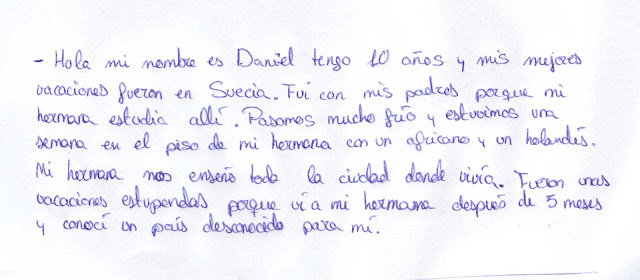 - Hola mi nombre es Daniel tengo 10 años y mis mejores
vacaciones fueron en Suecia. Fui con mis padres porque mi
hermana estudia allí. Pasamos mucho frío y estuvimos una
semana en el piso de mi hermana con un africano y un holandés.
Mi hermana nos enseño toda la ciudad donde vivía. Fueron unas
vacaciones estupendas porque vi a mi hermana después de 5 meses
y conocí un país desconocido para mí.